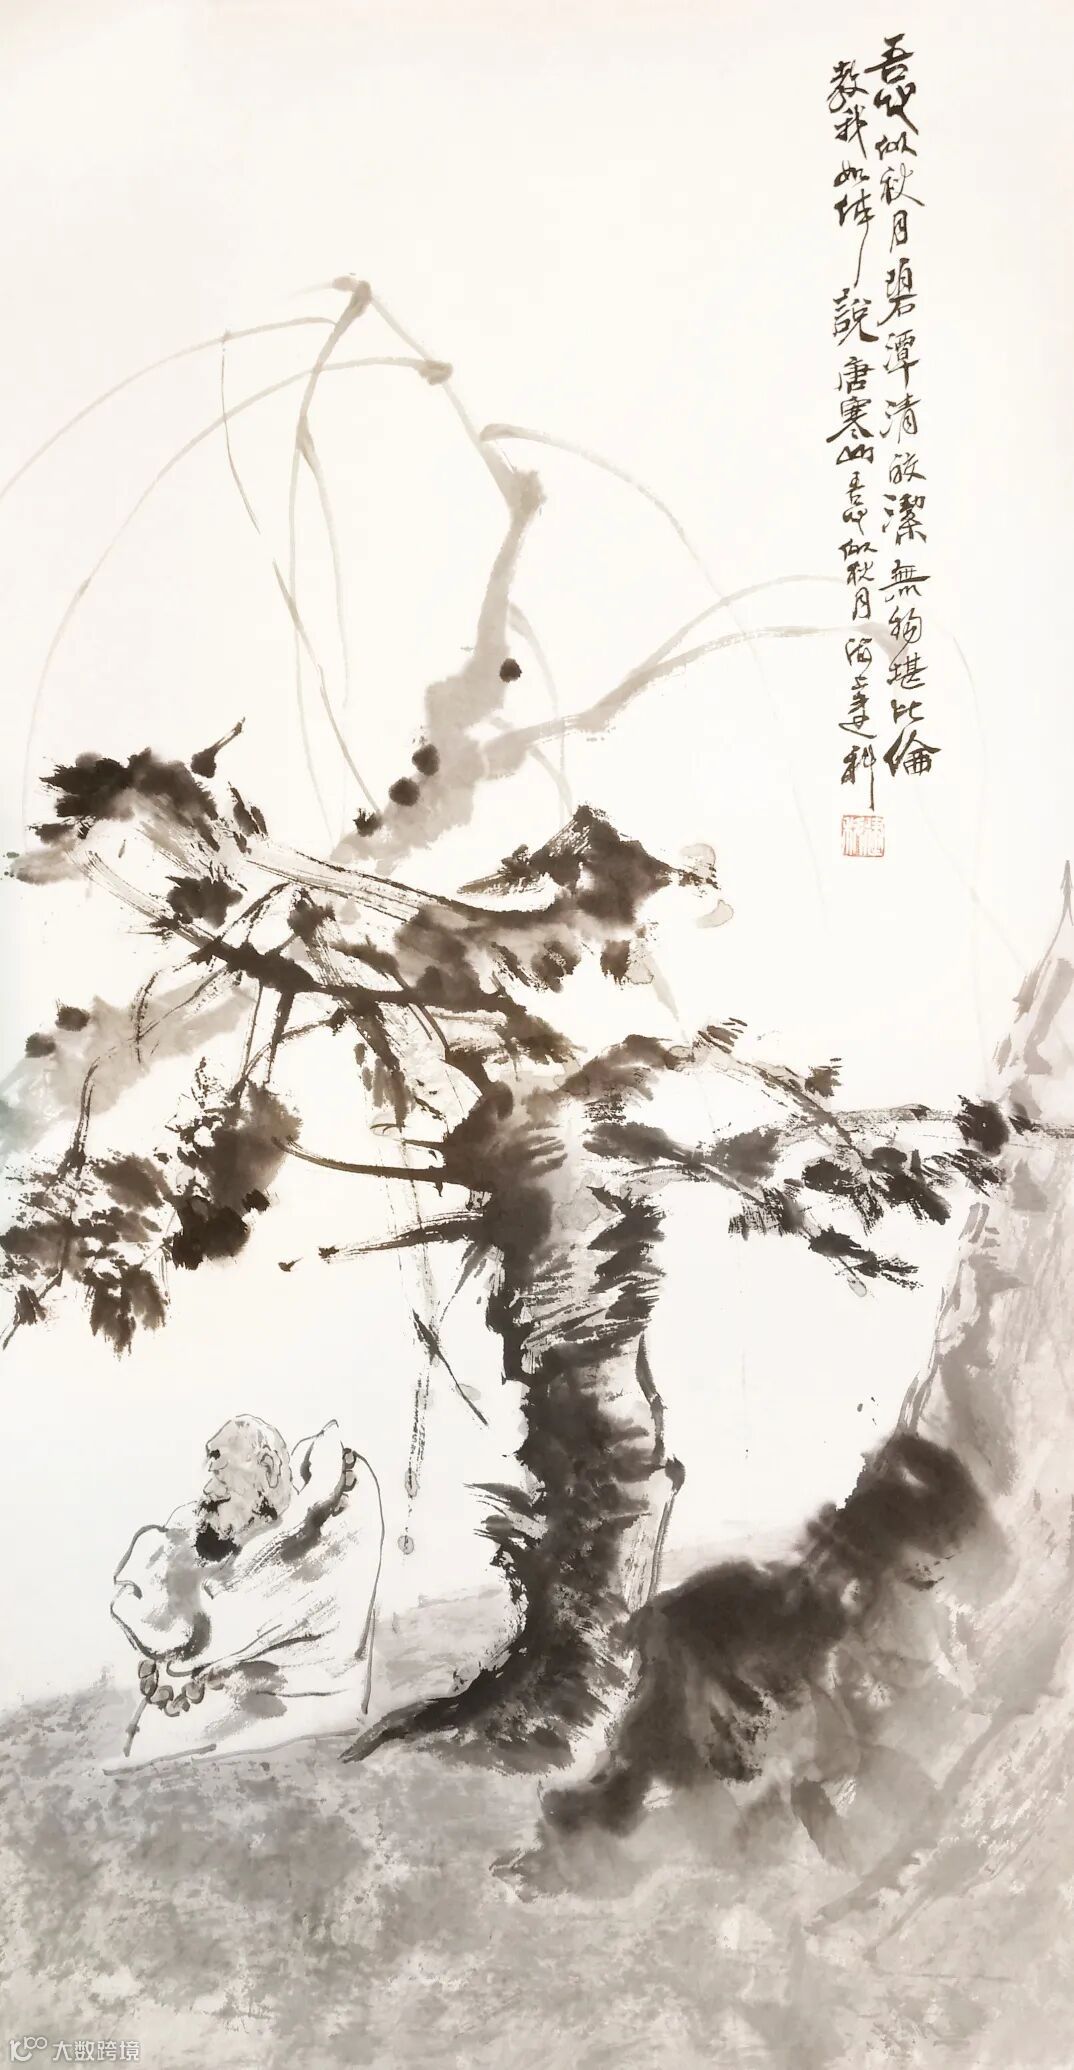 吾心似秋月碧潭清皎潔無物堪比倫
教我如何說 唐寒山吾心似秋月 海上達科
大数跨境